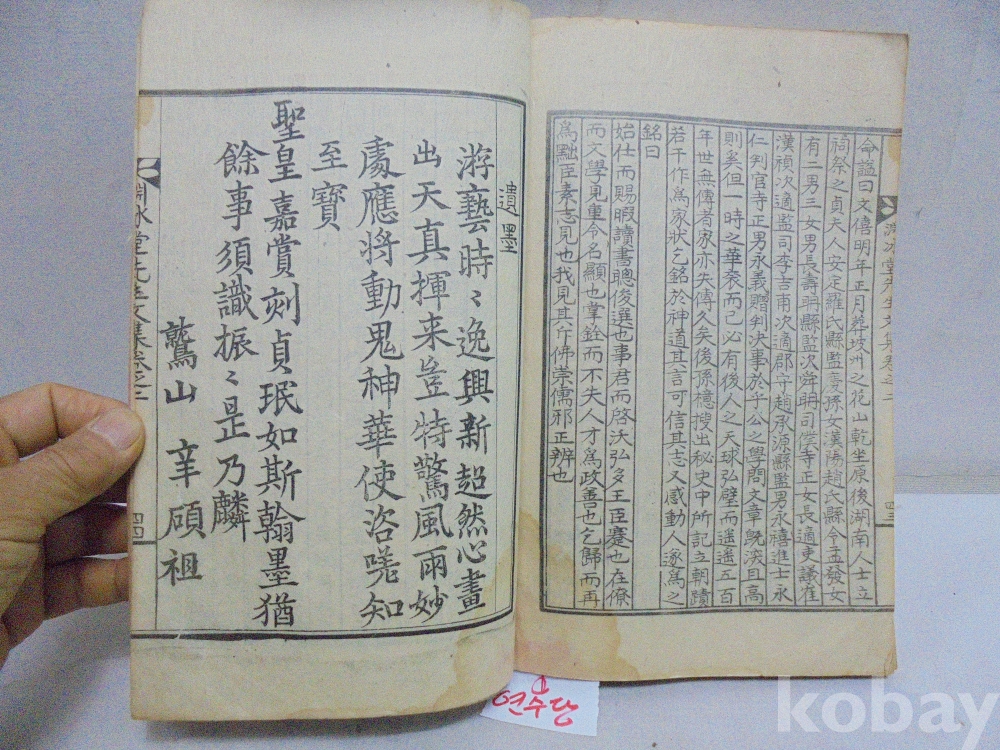 命諡曰文僖明年正月葬坡州之花山乾坐原後湖南人士立
祠祭之貞夫人安定羅氏縣監慶孫女漢陽趙氏縣令孟發女
有二男三女男長壽聃縣監次舜聃司䆃寺正女長適吏議崔
漢禎次適監司李吉甫次適郡守趙承源縣監男永禧進士永
仁判官寺正男永義贈判决事於乎公之學問文章旣淡且高
則奚但一時之華衮而已必有後人之天球弘璧而遙遙五百
年世無傳者家亦失傳久矣後孫檍搜出秘史中所記立朝蹟
若干作爲家狀乞銘於神道其言可信其志又感動人遂爲之
銘曰
始仕而賜暇讀書聰俊選也事君而啓沃弘多王臣蹇也在僚
而文學見重令名顯也掌銓而不失人才爲政善也乞歸而再
爲黜臣素志見也我見其斥佛崇儒邪正辨也
淵氷堂先生文集卷之二
四三
遺墨
游藝時〻逸興新超然心畫
出天真揮来豈特驚風雨妙
處應將動鬼神華使咨嗟知
至寶
聖皇嘉賞刻貞珉如斯翰墨猶
餘事須識振〻是乃麟
鷲山 辛碩祖
淵氷堂先生文集卷之二
四四
연수당
kobay